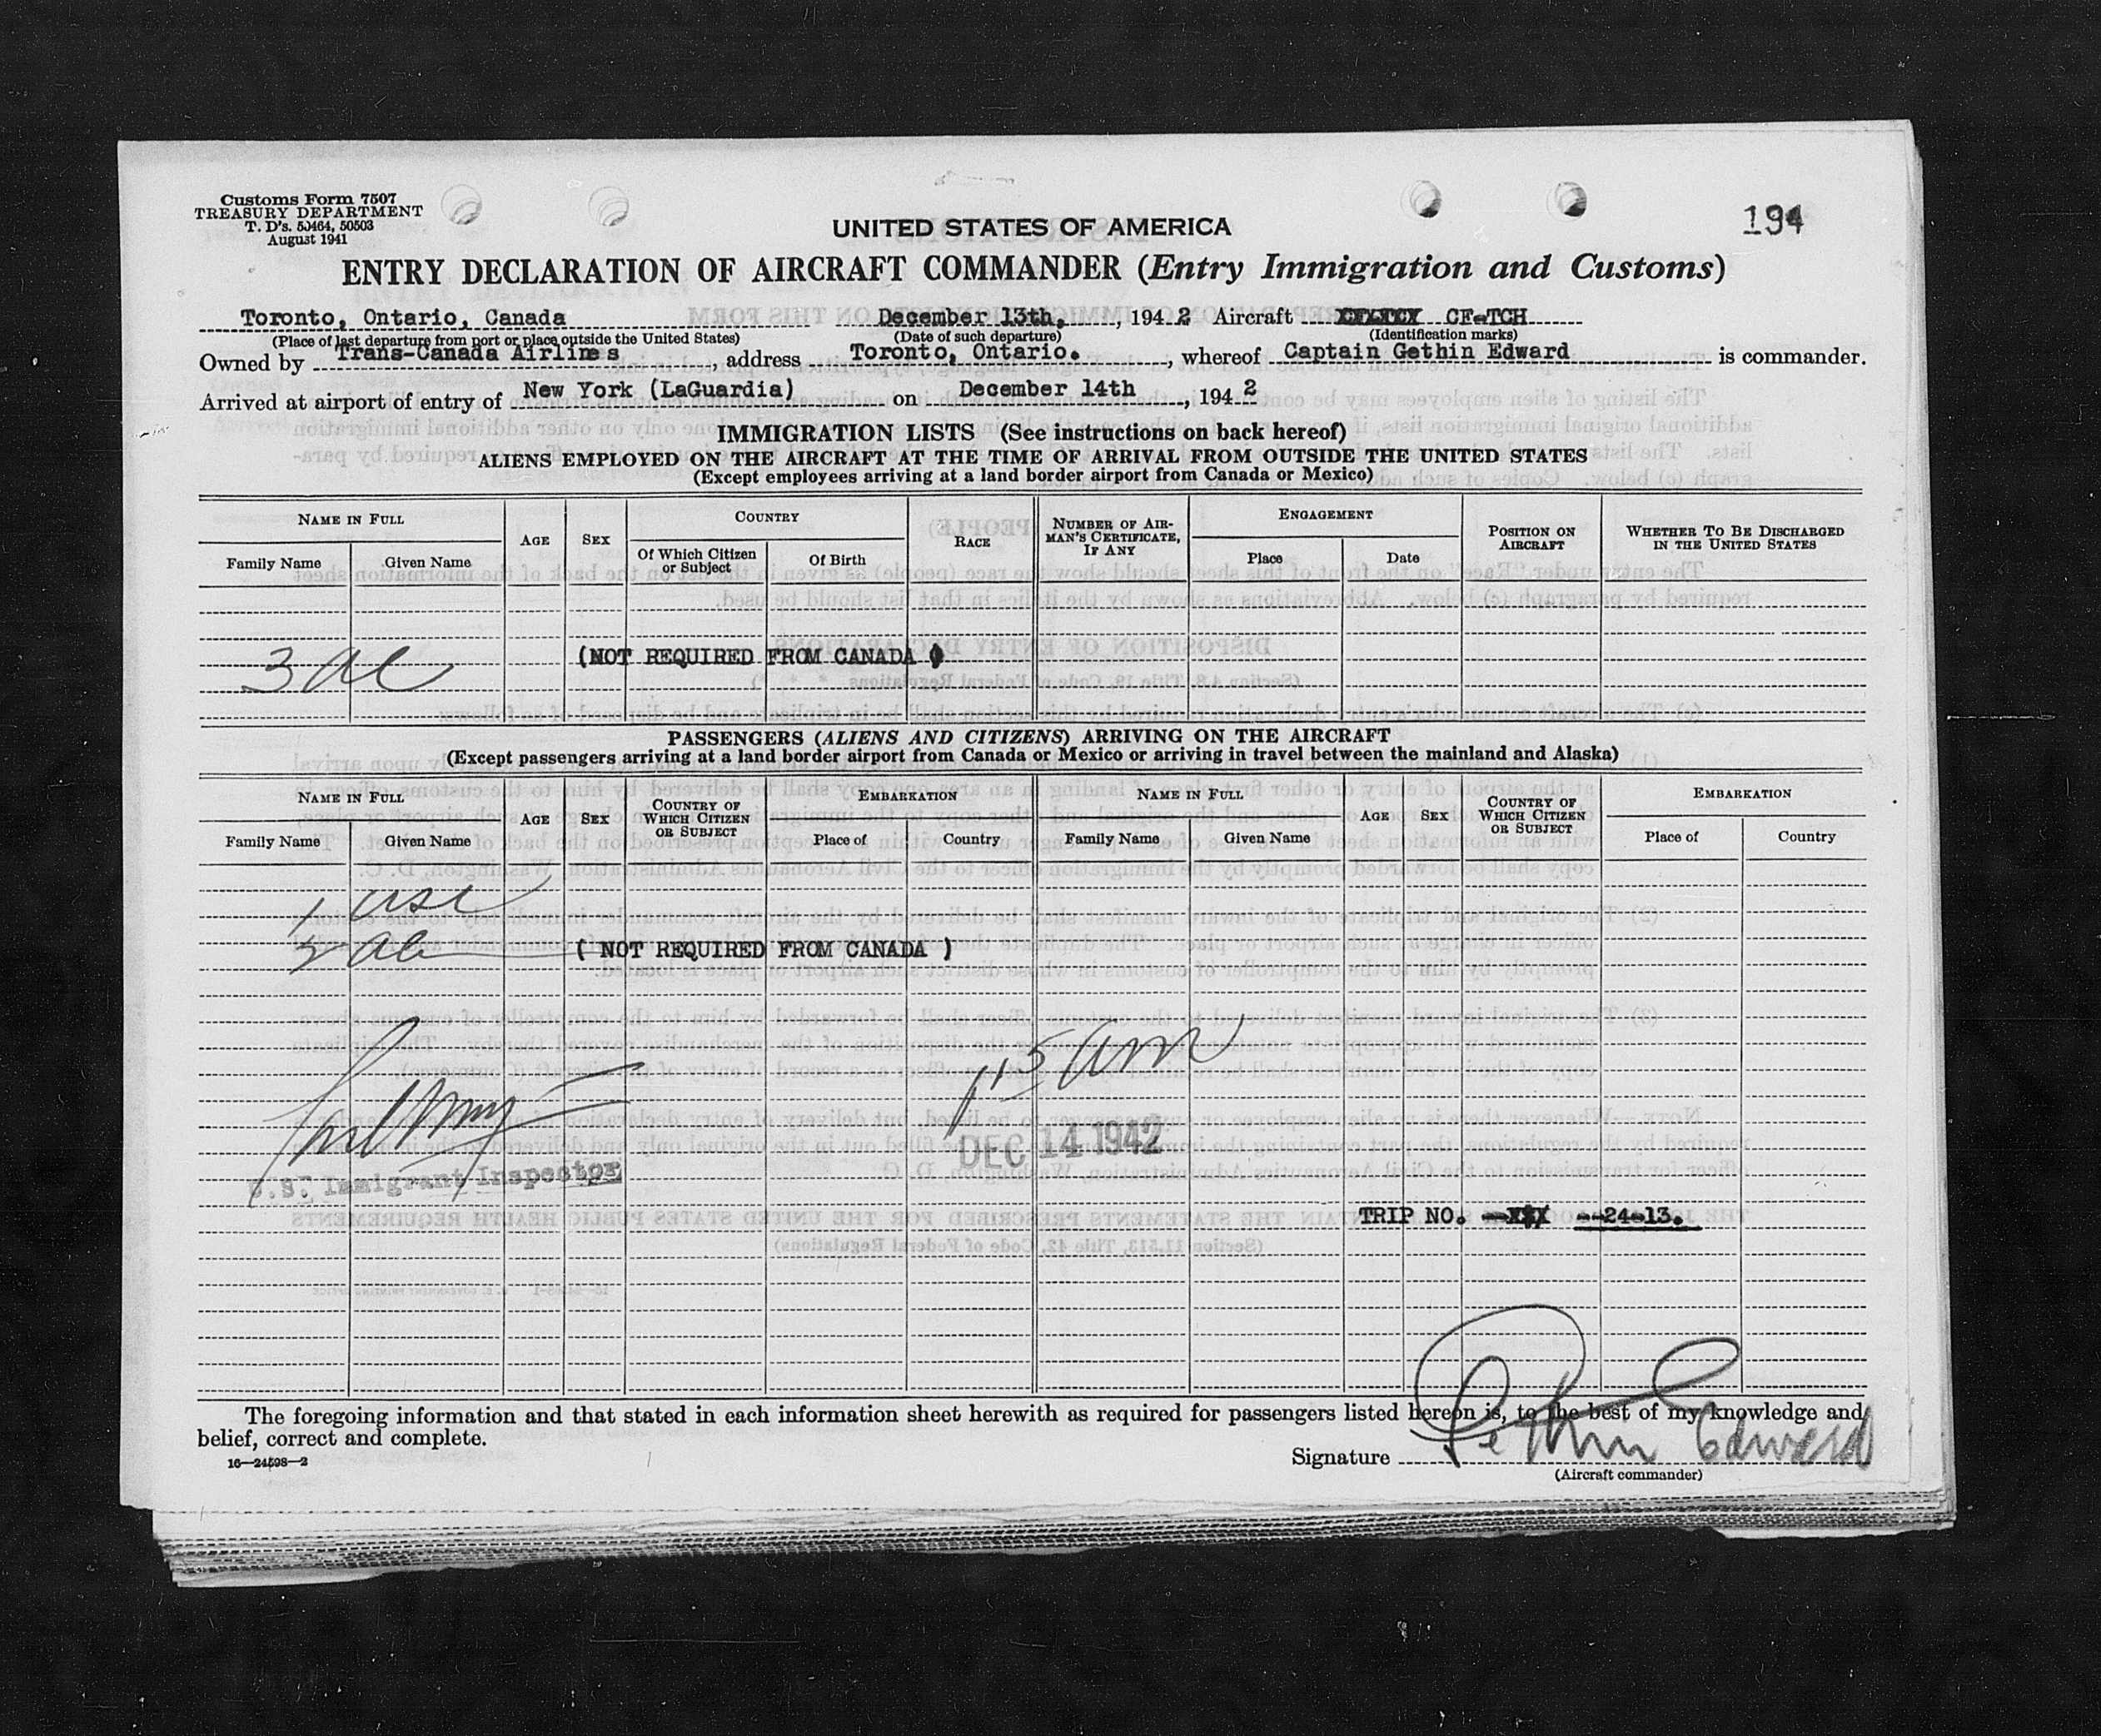 Customs Form 7507
TREASURY DEPARTMENT
T. D's. 50464, 50503
August 1941
194
UNITED STATES OF AMERICA
ENTRY DECLARATION OF AIRCRAFT COMMANDER (Entry Immigration and Customs)
Toronto, Ontario, Canada December 13th, , 194 2 Aircraft CF-TCH
(Place of last departure from port or place outside the United States) (Date of such departure) (Identification marks)
Owned by Trans-Canada Airlines , address Toronto, Ontario. , whereof Captain Gethin Edward is commander.
Arrived at airport of entry of New York (LaGuardia) on December 14th , 194 2
IMMIGRATION LISTS (See instructions on back hereof)
ALIENS EMPLOYED ON THE AIRCRAFT AT THE TIME OF ARRIVAL FROM OUTSIDE THE UNITED STATES
(Except employees arriving at a land border airport from Canada or Mexico)
NAME IN FULL AGE SEX COUNTRY RACE NUMBER OF AIRMAN'S CERTIFICATE, IF ANY ENGAGEMENT POSITION ON AIRCRAFT WHETHER TO BE DISCHARGED IN THE UNITED STATES
Family Name Given Name Of Which Citizen or Subject Of Birth Place Date
3 al (NOT REQUIRED FROM CANADA )
PASSENGERS (ALIENS AND CITIZENS) ARRIVING ON THE AIRCRAFT
(Except passengers arriving at a land border airport from Canada or Mexico or arriving in travel between the mainland and Alaska)
NAME IN FULL AGE SEX COUNTRY OF WHICH CITIZEN OR SUBJECT EMBARKATION NAME IN FULL AGE SEX COUNTRY OF WHICH CITIZEN OR SUBJECT EMBARKATION
Family Name Given Name Place of Country Family Name Given Name Place of Country
1 usc
al ( NOT REQUIRED FROM CANADA )
115 am
DEC 14 1942
U.S. Immigrant Inspector
TRIP NO. --24-13.
The foregoing information and that stated in each information sheet herewith as required for passengers listed hereon is, to the best of my knowledge and
belief, correct and complete.
Signature Gethin Edward
16—24598—2
(Aircraft commander)